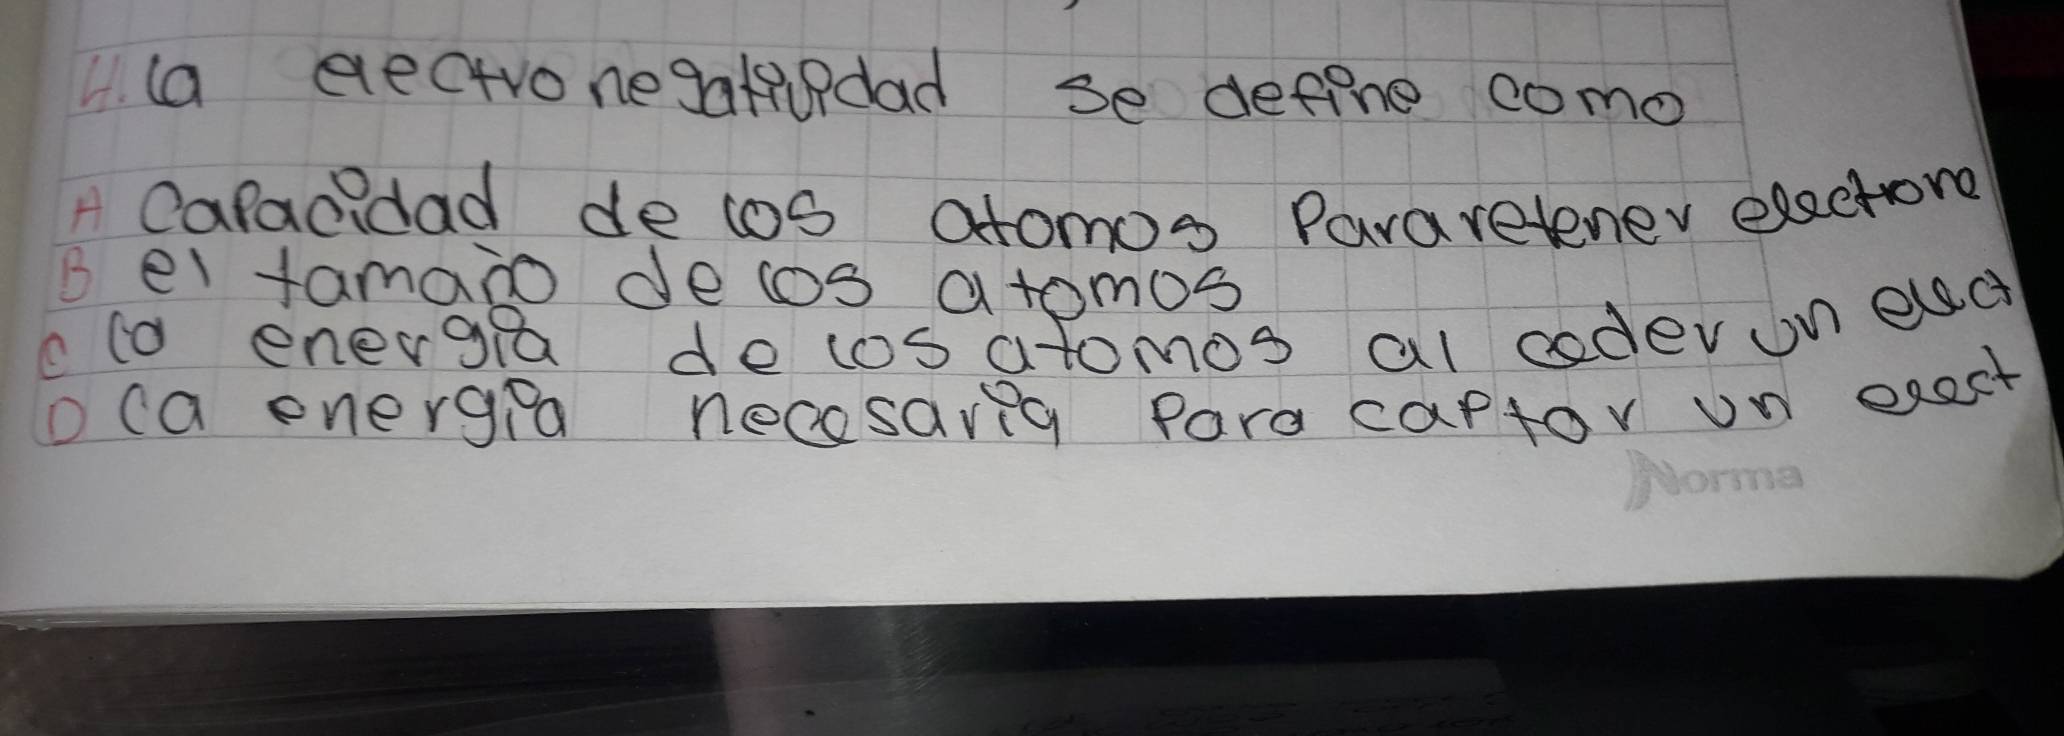 4. la electronegatividad se define como
A Capacidad de los atomos Para retener electrone
B el tamaño de los atomos
C la energia de los atomos al ceder un elect
D la energia necesaria Para captar un elect
Norma